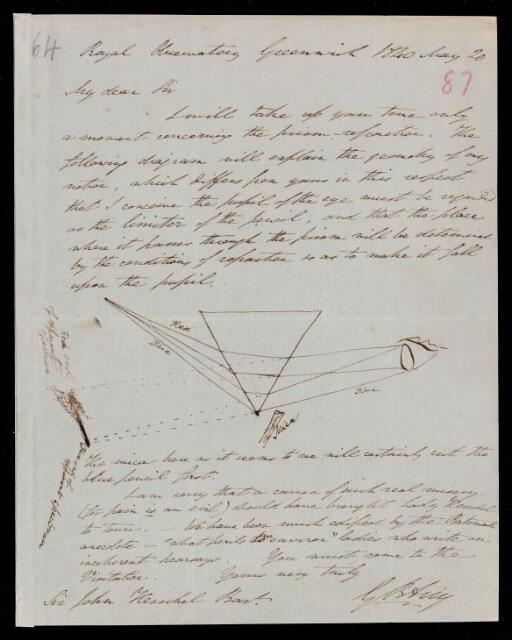 64
Royal Observatory Greenwich 1840 May 20
87
My dear Sir
I will take up your time only
a moment concerning the prism-refraction. The
following diagram will explain the geometry of my
notion, which differs from yours in this respect
that I conceive the pupil of the eye must be regarded
as the limiter of the pencil, and that the place
where it passes through the prism will be determined
by the conditions of refraction so as to make it fall
upon the pupil.
Red
Blue
Blue
Mica
Red end
of
spectrum
the mica here as it seems to me will certainly cut the
blue pencil first.
I am sorry that a cause of such real misery
(for pain is an evil) should have brought Lady Herschel
to town. — We have been much edified by the
anecdote — what perils "environ" ladies who write an
incoherent
You must come to the
Visitation.
Yours very truly
G B Airy
Sir John Herschel Bart.